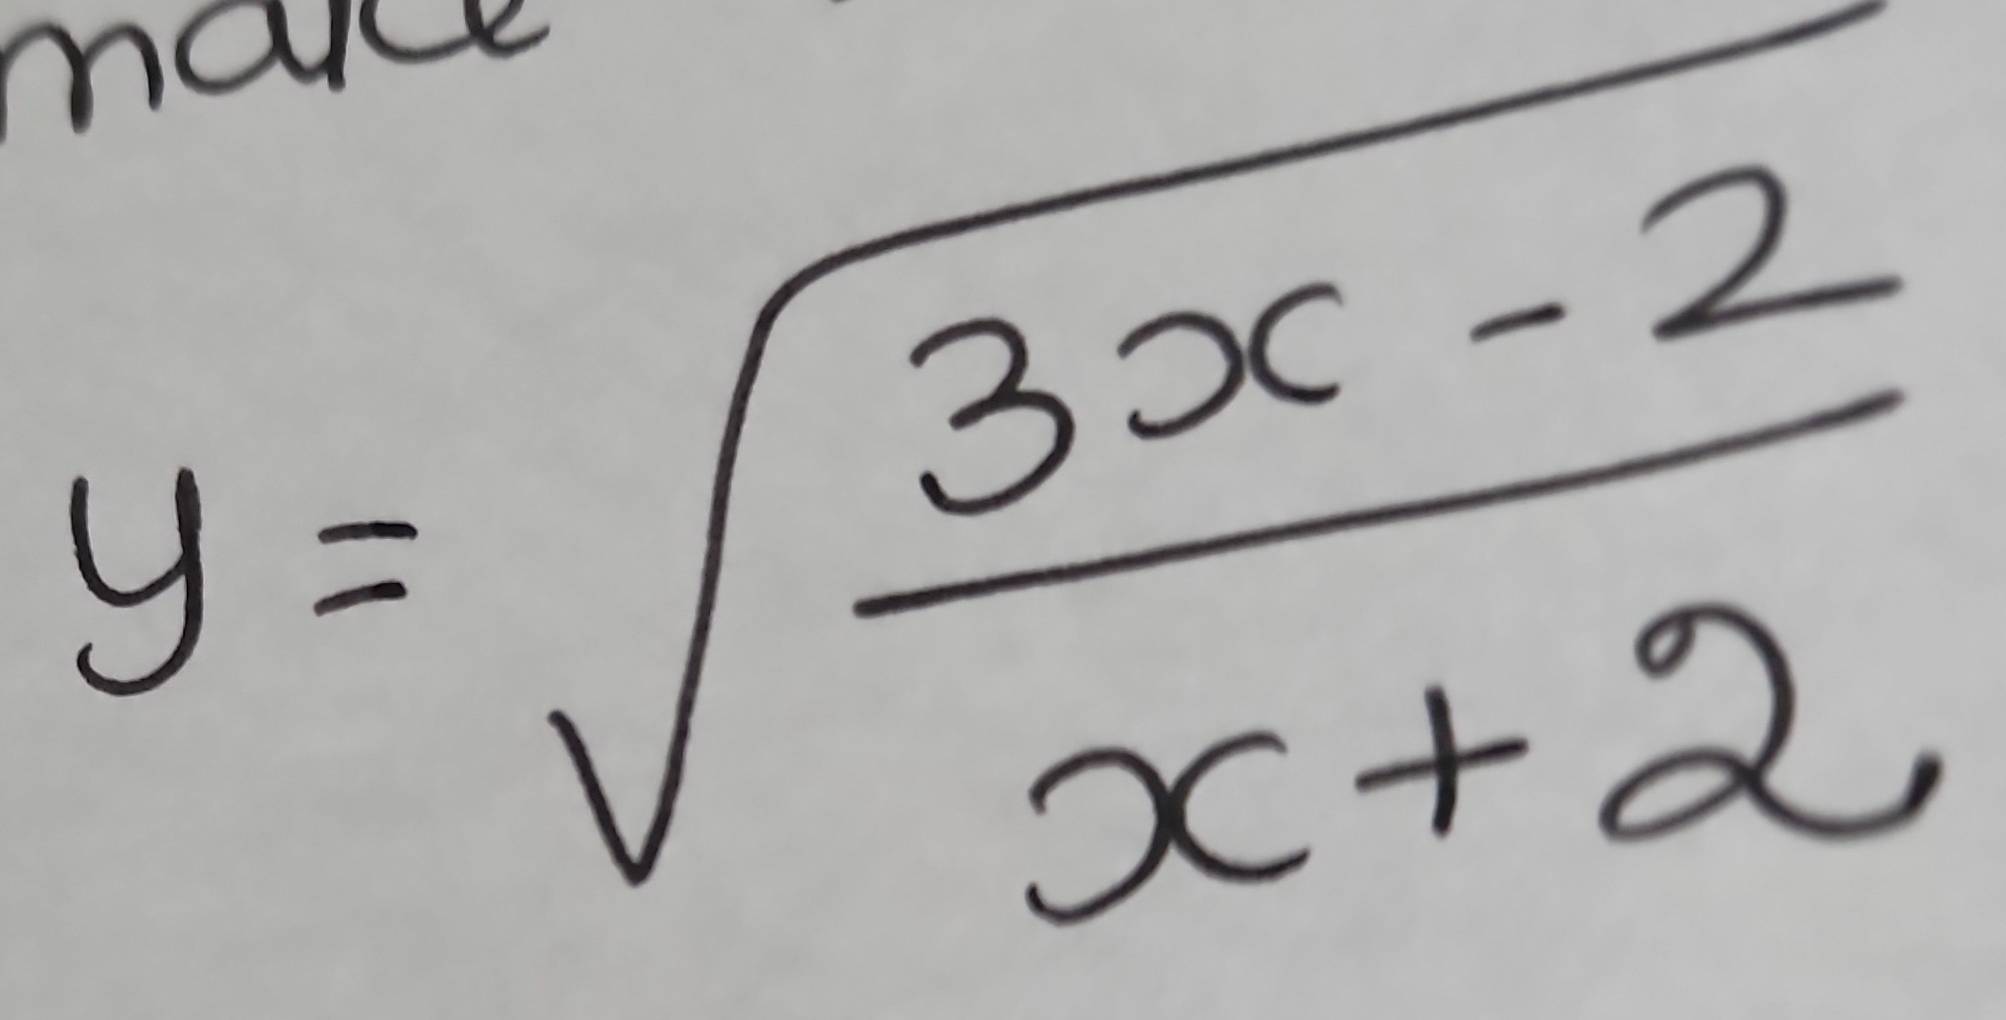 make
y = √((3x - 2)/(x + 2))